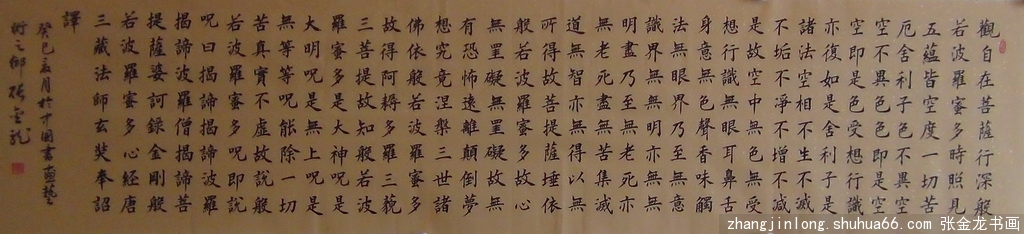 觀自在菩薩行深般
若波羅蜜多時照見
五蘊皆空度一切苦
厄舍利子色不異空
空不異色色即是空
空即是色受想行識
亦復如是舍利子是
諸法空相不生不滅
不垢不淨不增不減
是故空中無色無受
想行識無眼耳鼻舌
身意無色聲香味觸
法無眼界乃至無意
識界無無明亦無無
明盡乃至無老死亦
無老死盡無苦集滅
道無智亦無得以無
所得故菩提薩埵依
般若波羅蜜多故心
無罣礙無罣礙故無
有恐怖遠離顛倒夢
想究竟涅槃三世諸
佛依般若波羅蜜多
故得阿耨多羅三藐
三菩提故知般若波
羅蜜多是大神呪是
大明呪是無上呪是
無等等呪能除一切
苦真實不虛故說般
若波羅蜜多呪即說
呪曰揭諦揭諦波羅
揭諦波羅僧揭諦菩
提薩婆訶錄金剛般
若波羅蜜多心經唐
三藏法師玄奘奉詔
譯
癸巳月於中國書画
之鄉張金龍
zhangjinlong.shuhua66.com 张金龙书画